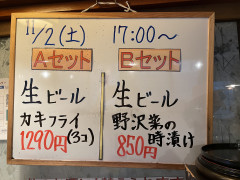 11/2(土) 17:00～
Aセット
生ビール
カキフライ
(3コ)
1290円
Bセット
生ビール
野沢菜の
時漬け
850円